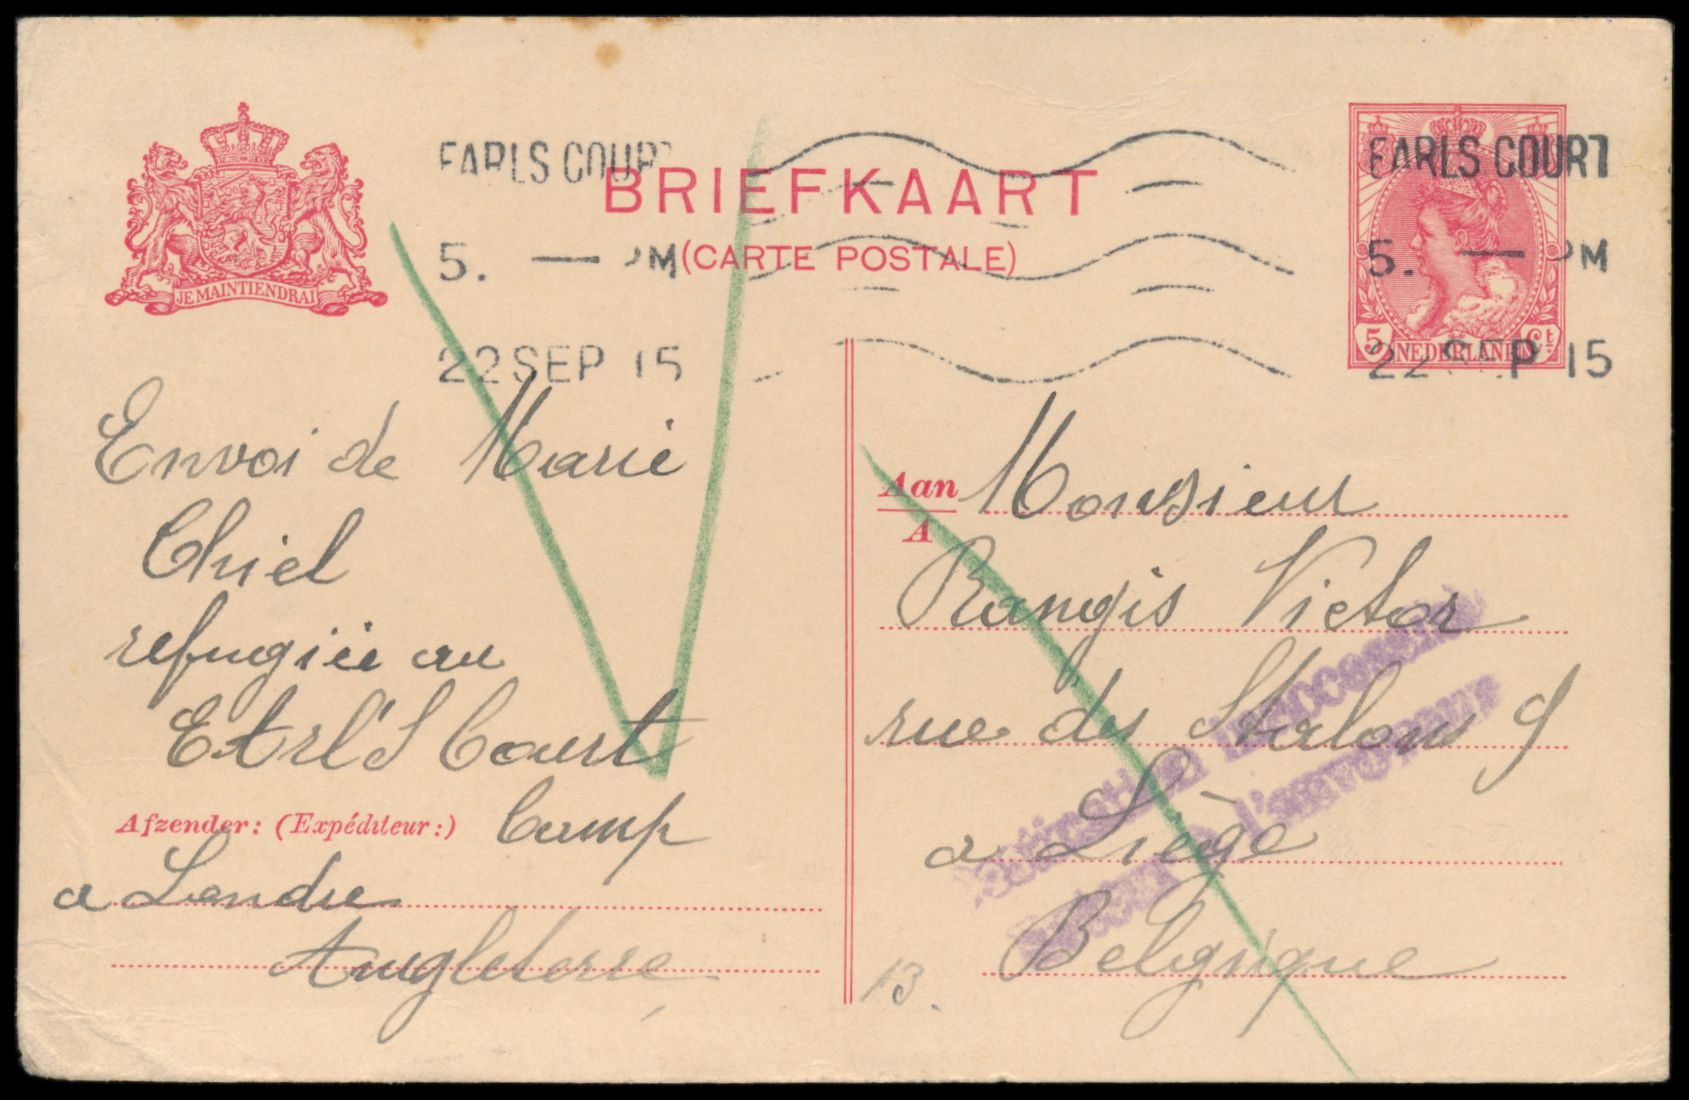 EARLS COURT
BRIEFKAART
EARLS COURT
5. — PM
(CARTE POSTALE)
5. — PM
JE MAINTIENDRAI
22 SEP 15
5 Ct.
NEDERLAND
22 SEP 15
Envoi de Marie
Chiel
refugiée au
EArl'S Court
Afzender: (Expéditeur:) Camp
a Londre
Angleterre
Aan
A
Monsieur
Rangis Victor
rue des
a Liège
Belgique
Destination inaccessible
Retour à l'envoyeur
13.